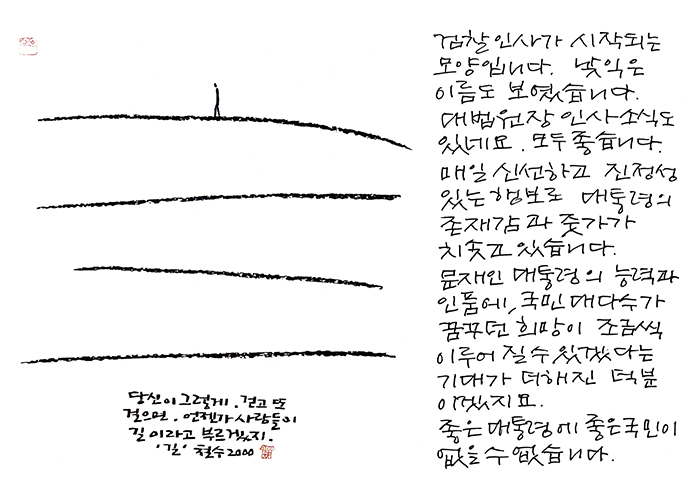 당신이 그렇게. 걷고 또
걸으면. 언젠가 사람들이
길이라고 부르겠지.
'길' 철수 2000
검찰인사가 시작되는
모양입니다. 낯익은
이름도 보였습니다.
대법원장 인사소식도
있네요. 모두 좋습니다.
매일 신선하고 진정성
있는 행보로 대통령의
존재감과 줏가가
치솟고 있습니다.
문재인 대통령의 능력과
인품에, 국민 대다수가
꿈꾸던 희망이 조금씩
이루어 질 수 있겠다는
기대가 더해진 덕분
이겠지요.
좋은 대통령에 좋은국민이
없을 수 없습니다.